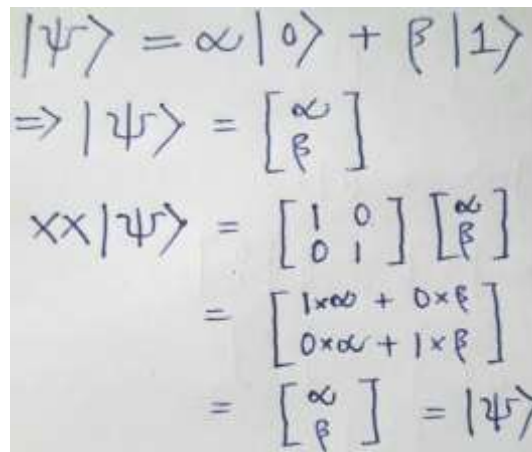 |ψ⟩ = α|0⟩ + β|1⟩
=> |ψ⟩ = [α β]
XX|ψ⟩ = [1 0 0 1] [α β]
= [1×α + 0×β 0×α + 1×β]
= [α β] = |ψ⟩